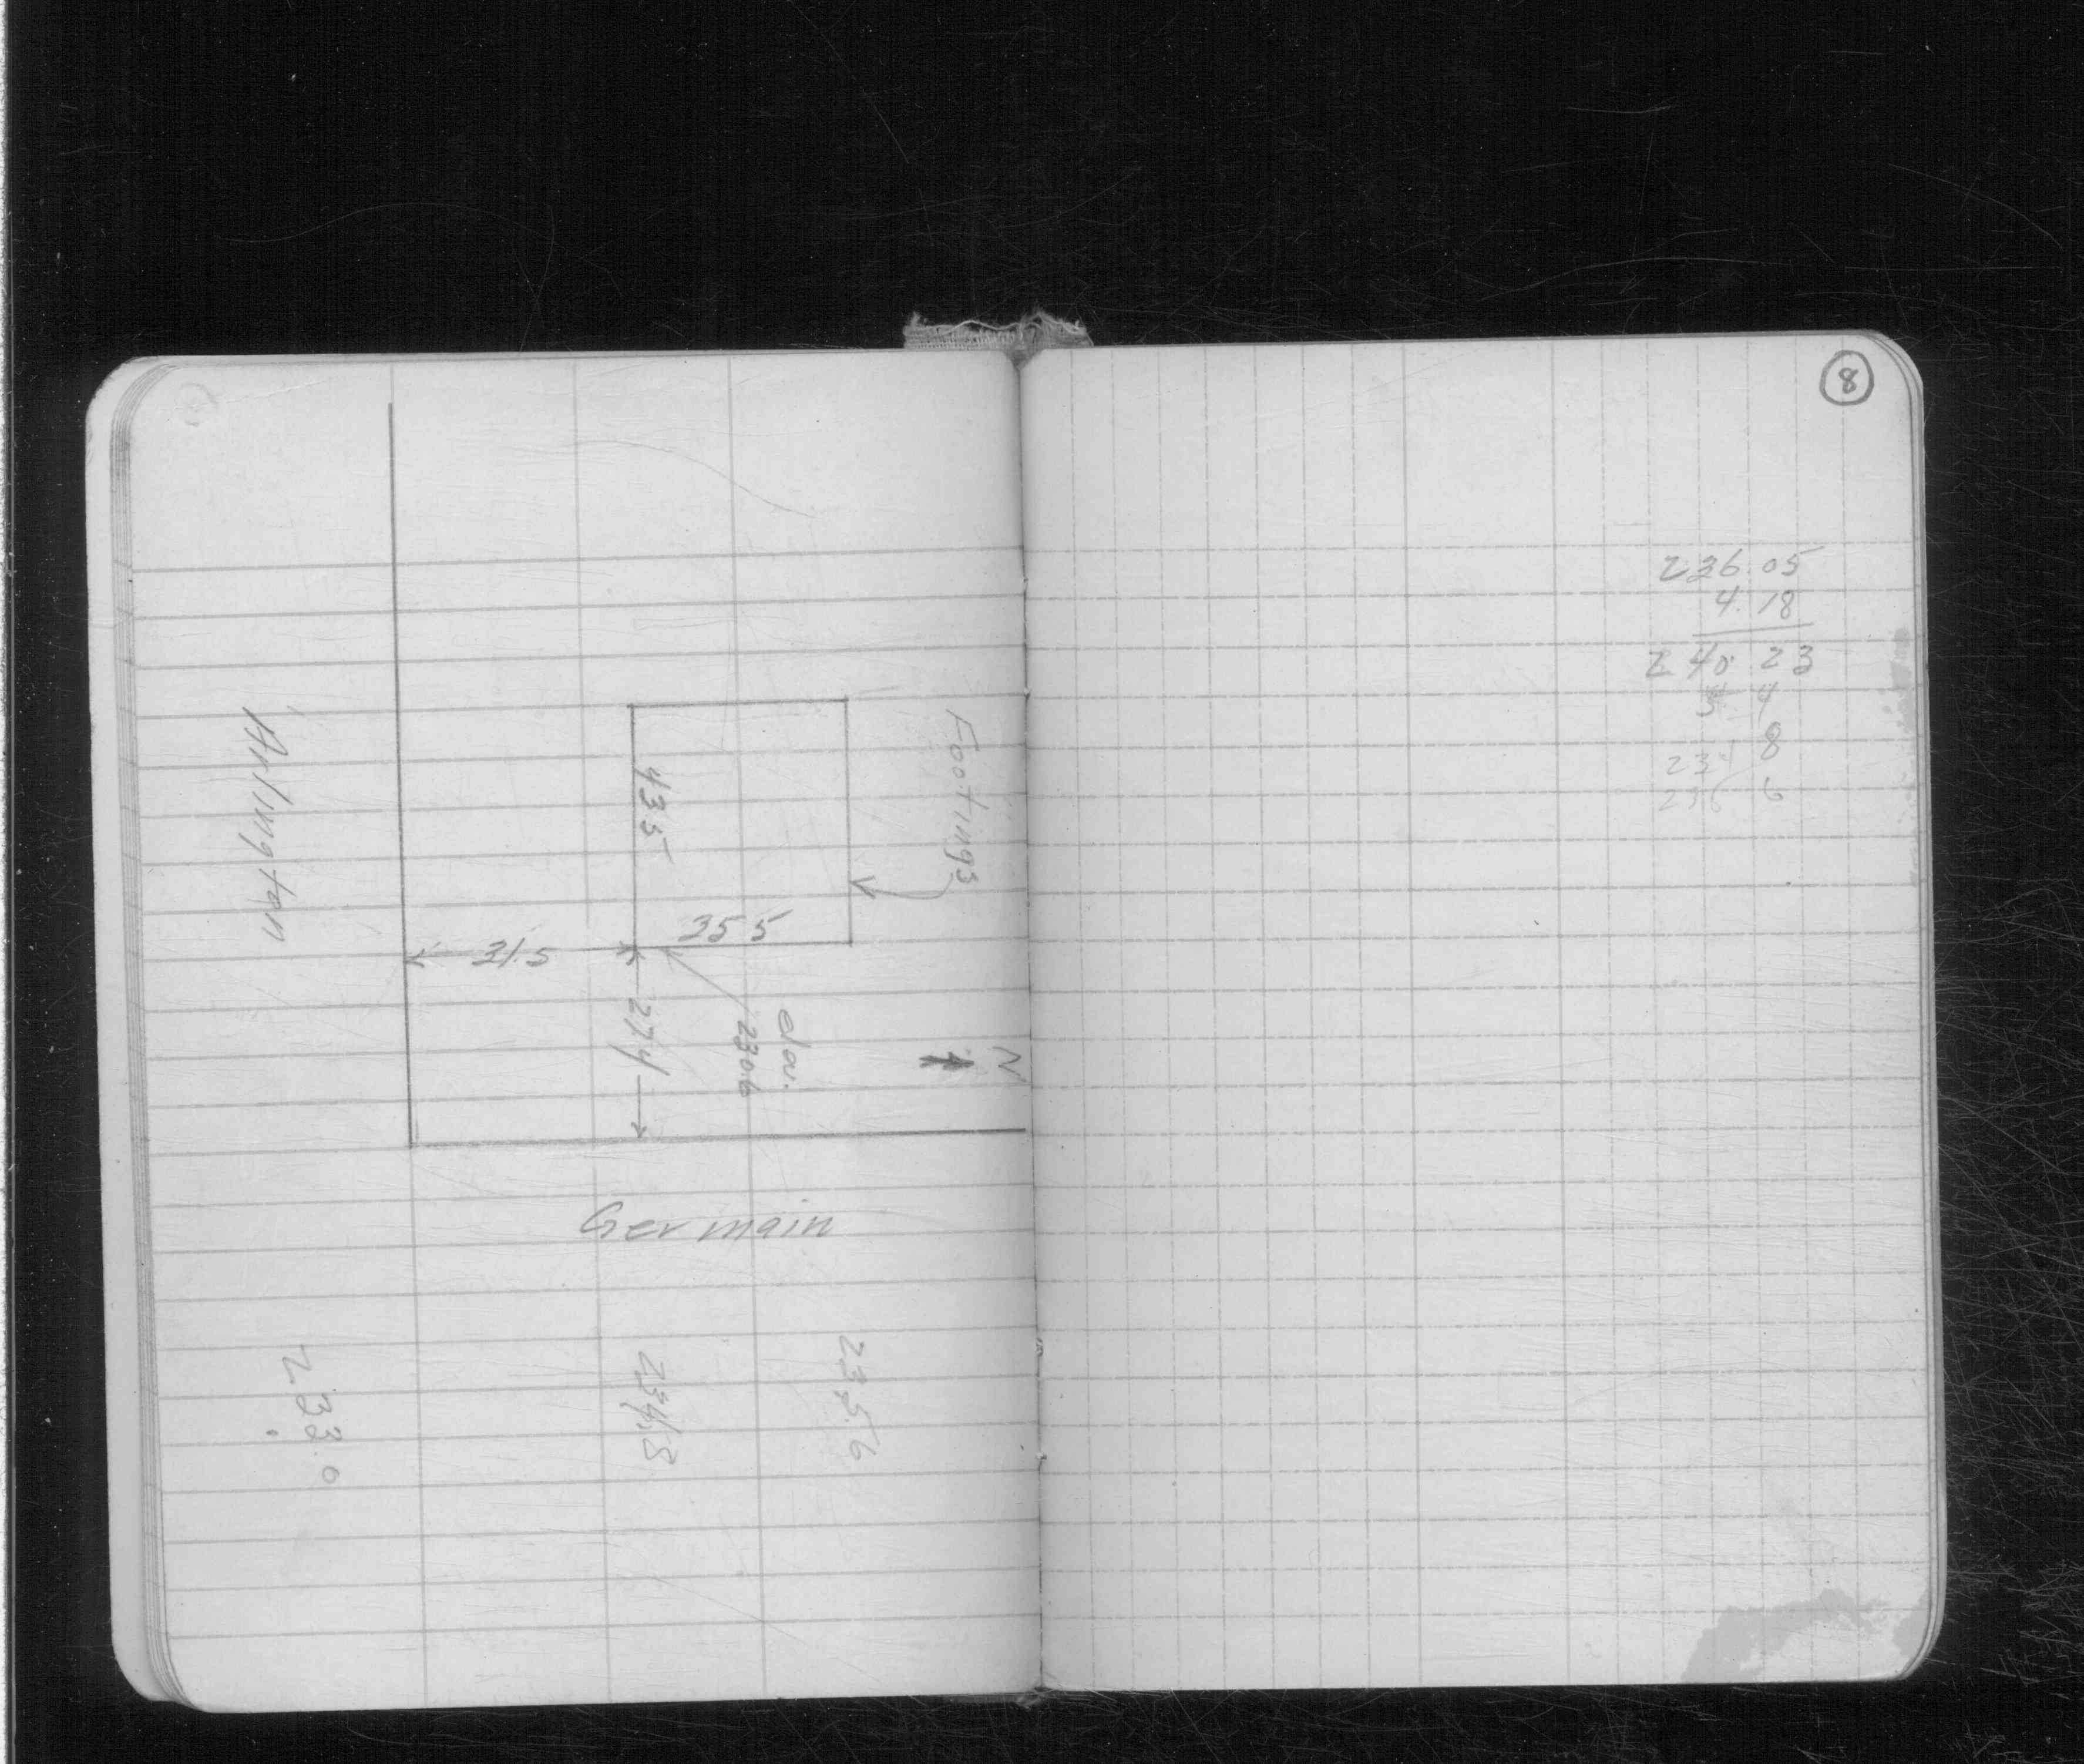 Footings
43.5
35 5
31.5
27.4
elav.
230.6
N
Arlington
Germain
235.6
234.8
233.0
8
236.05
4.18
240.23
4
8
6